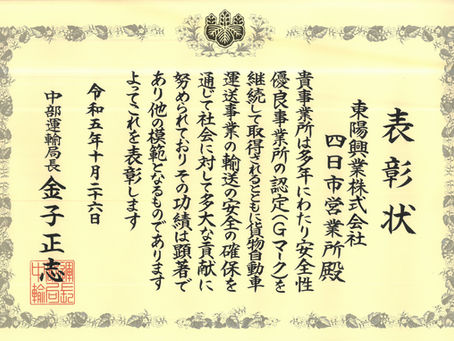 表彰状
東陽興業株式会社
四日市営業所殿
貴事業所は多年にわたり安全性
優良事業所の認定(Gマーク)を
継続して取得されるとともに貨物自動車
運送事業の輸送の安全の確保を
通じて社会に対して多大な貢献に
努められておりその功績は顕著で
あり他の模範となるものであります
よってこれを表彰します
令和五年十月二十六日
中部運輸局長 金子正志